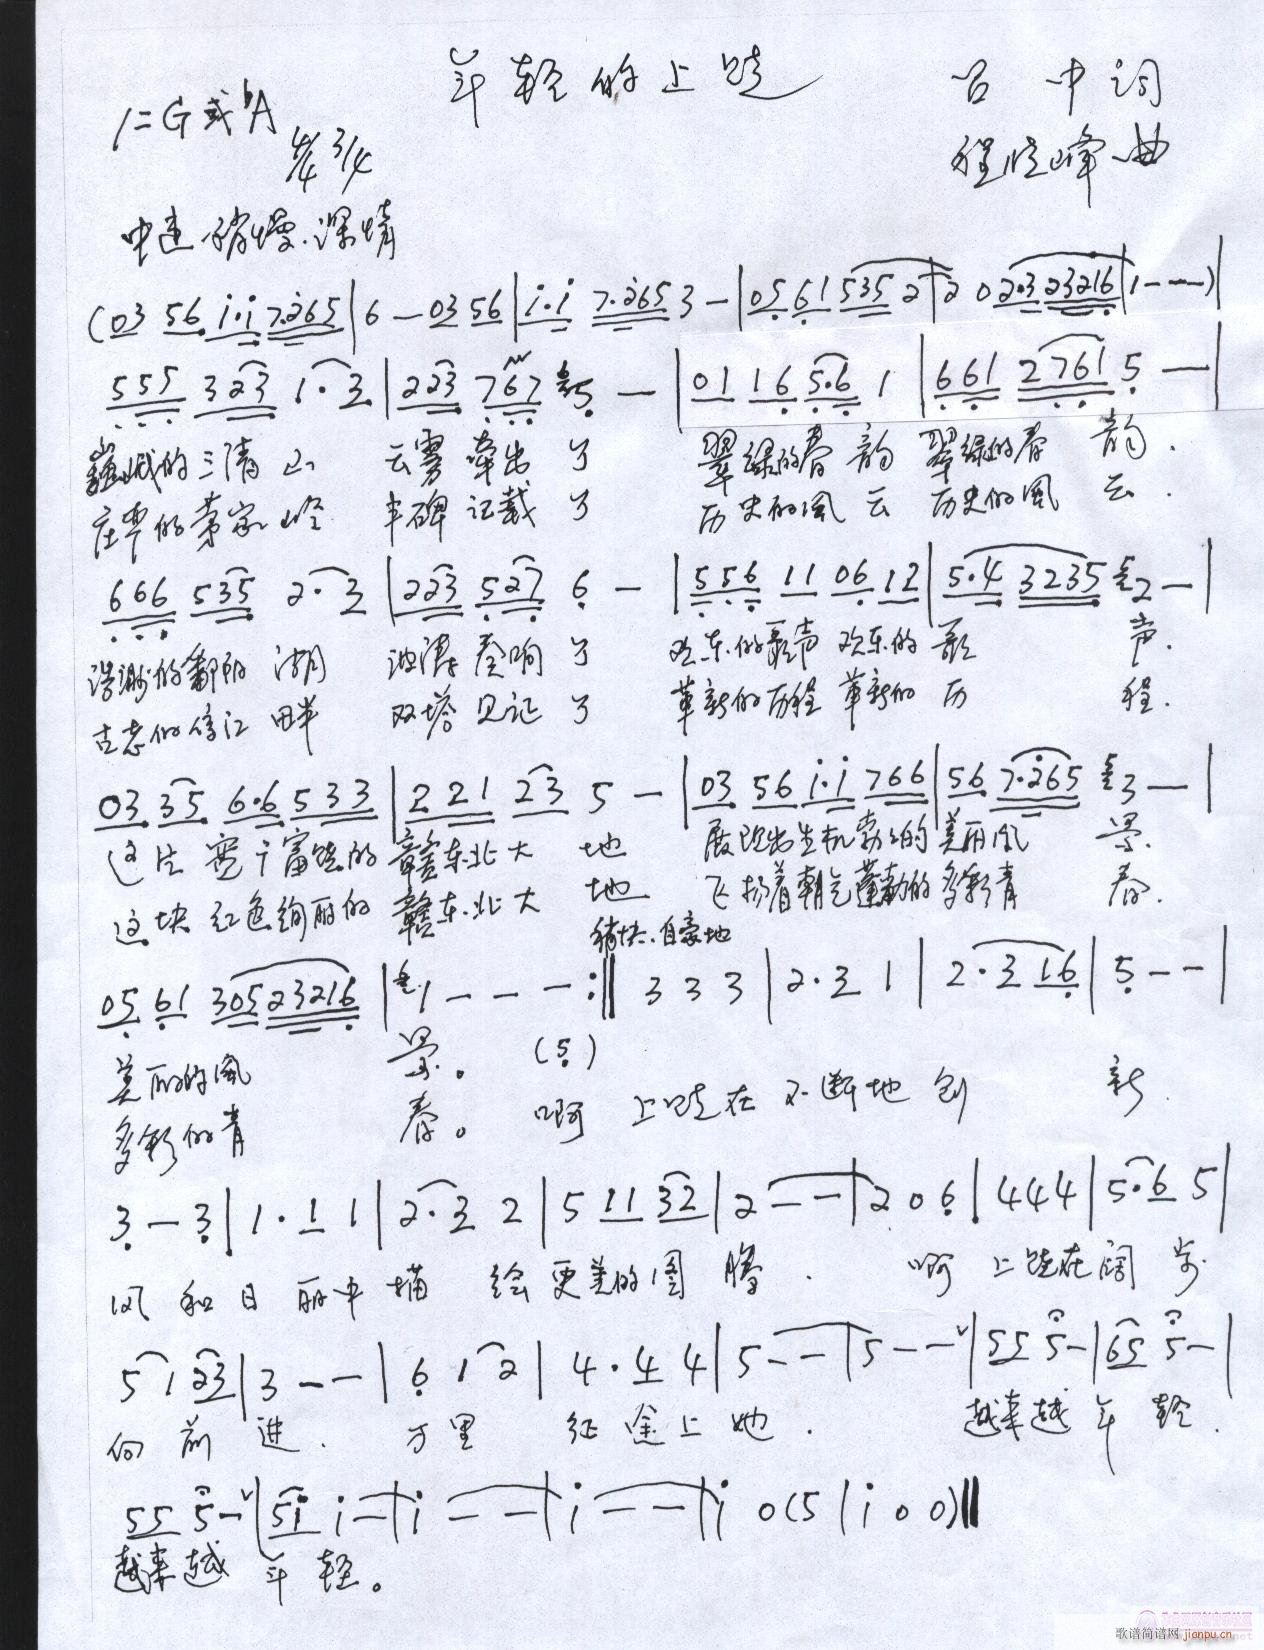 年轻的上饶
吕中词
1=G或♭A 4/4 3/4
程晓峰曲
中速 稍慢.深情
(03 56 i·i 7.265|6 — 03 56|i·i 7.265 3 —|05 61 535 2|2 0 2·3 23216|1 - - -)|
555 323 1·3|223 767 5 —|01 16 5·6 1|661 2761 5 —|
巍峨的三清山 云雾牵出了 翠绿的春韵 翠绿的春韵.
庄严的葛家岭 丰碑记载了 历史的风云 历史的风云.
666 535 2·3|223 527 6 —|556 11 06 12|5·4 3235 2 —|
浩渺的鄱阳湖 波涛奏响了 欢乐的歌声 欢乐的歌声.
古老的信江畔 双塔见证了 革新的历程 革新的历程.
03 35 6·6 533|221 23 5 —|03 56 i·i 766|56 7·265 3 —|
这片宽广富饶的赣东北大地 展现出生机勃勃的美丽风景.
这块红色绚丽的赣东北大地 飞扬着朝气蓬勃的多彩青春.
稍快.自豪地
05 61 30523216|1 - - - :‖ 3 3 3|2·3 1|2·3 16|5 - -|
美丽的风景。 (5)
多彩的青春。 啊 上饶在不断地创新.
3 — 3|1·1 1|2·3 2|5 11 32|2 - -|2 0 6|4 4 4|5·6 5|
风和日丽中描绘更美的图腾. 啊 上饶在阔步
5 1 23|3 - -|6 1 2|4·4 4|5 - -|5 - -|55 5 -|65 5 -|
向前进. 万里征途上她. 越来越年轻.
55 5 -|5i i -|i - -|i - -|i 0 (5|i 0 0)‖
越来越年轻。
歌谱简谱网 jianpu.cn